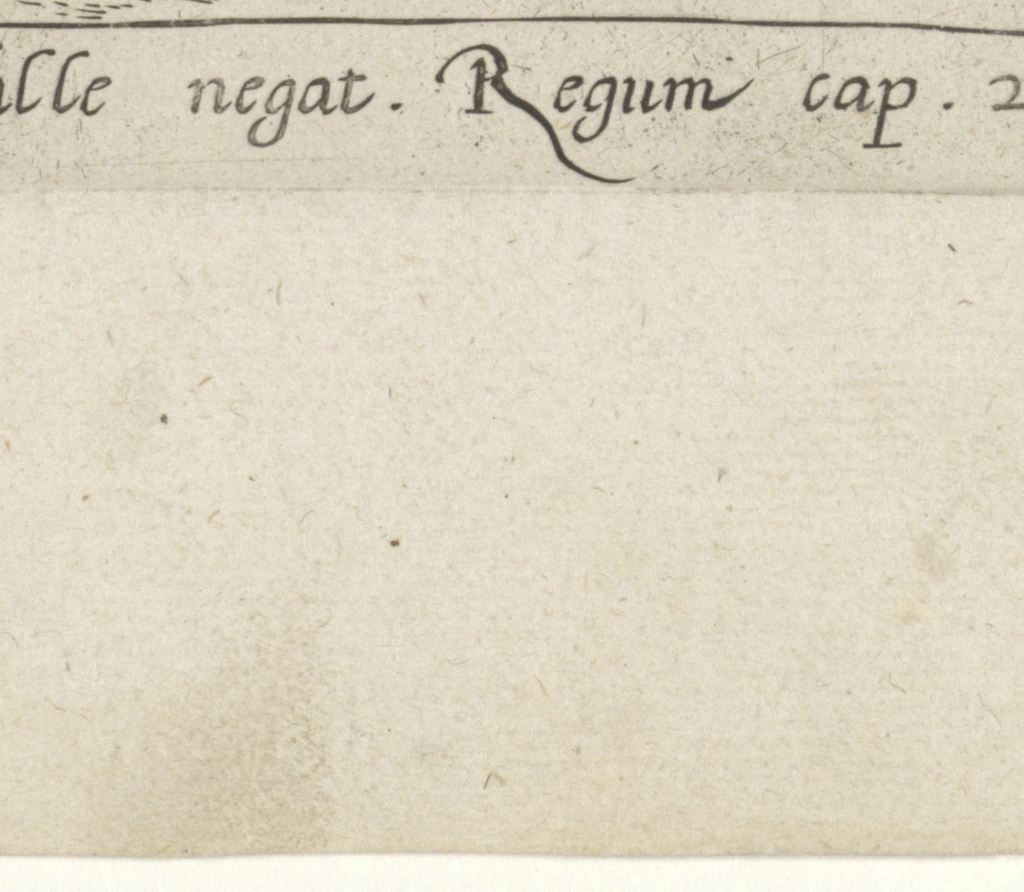 ille negat. Regum cap. 2